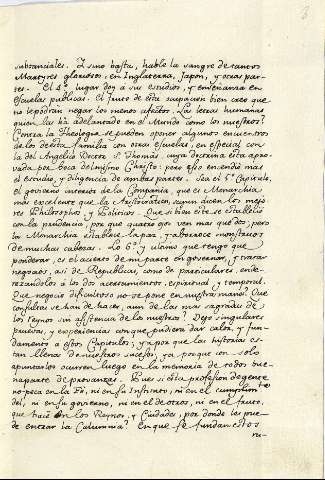 substanciales. Y sino basta, hable la sangre de tantos
Martyres gloriosos, en Inglaterra, Japon, y otras par-
tes. El 4º lugar doy a sus estudios, y enseñanza en
escuelas publicas. El fruto de esta ocupacion bien creo que
no le podràn negar los menos afectos. Las letras humanas
quien las hà adelantado en el Mundo como los nuestros?
Contra la Theologia se pueden oponer algunos encuentros
de los de esta familia con otras escuelas, en especial con
la del Angelico Doctor S. Thomàs, cuya doctrina està apro-
vada por boca del mismo Christo: pero esso enciende mas
el estudio, y diligencia de ambas partes. Sea el 5º Capitulo,
el govierno interior de la Compañia, que es Monarchia
mas excelente que la Aristocratica, segun dicen los mejo-
res Philosophos, y Politicos. Que si bien este se establecio
con la prudencia, por que quatro ojos ven mas que dos; pero
la Monarchia establece la paz, y aborrece monstruos
de muchas cabezas. Lo 6º y ultimo que tengo que
ponderar, es el acierto de mi parte en governar, y tratar
negocios, assi de Republicas, como de particulares, ende-
rezandolos a los dos acrecentamientos, espiritual, y temporal.
Que negocio dificultoso no se pone en nuestras manos? Que
consultas se han de hacer, aun de las mas sagradas de
los Reynos sin assistencia de los nuestros? Dejo singulares
pruevas, y experiencias con que pudiera dar calor, y fun-
damento a estos Capitulos; ya por que las historias es-
tan llenas de nuestros sucesos, ya porque con solo
apuntarlos ocurren luego en la memoria de todos bue-
na parte de provanzas. Pues si esta profesion de gene-
ro peca en la Fè, ni en su Instituto, ni en el cumplimto
del, ni en su govierno, ni en el de otros, ni en el fruto,
que hace en los Reynos, y Ciudades, por donde les pue-
de entrar la Calumnia? En que se funda estos